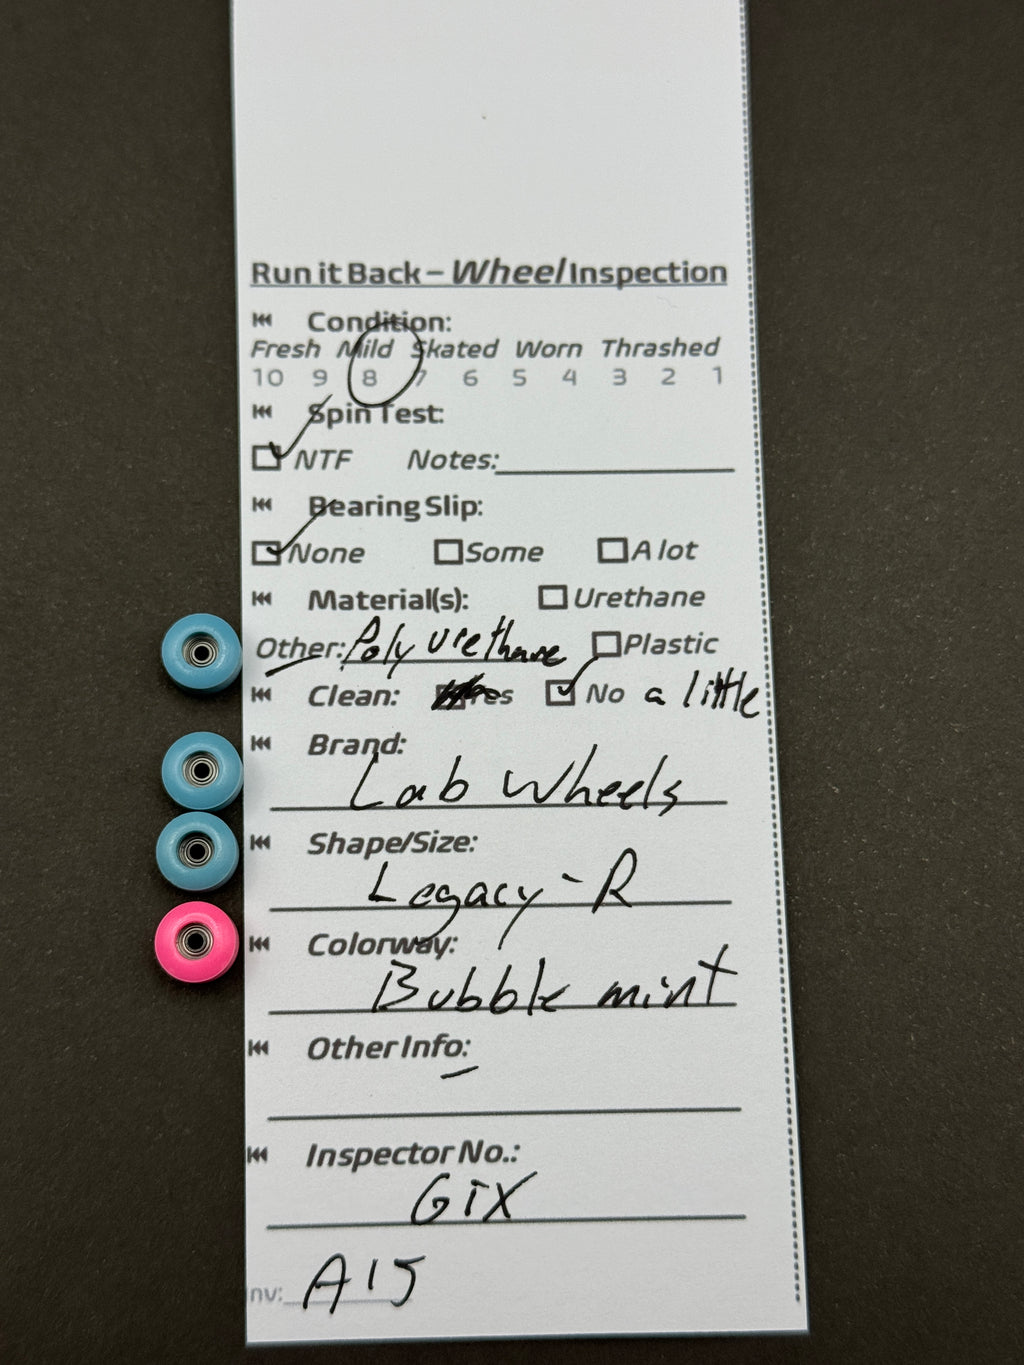 Run it Back – Wheel Inspection
Condition:
Fresh Mild Skated Worn Thrashed
10 9 8 7 6 5 4 3 2 1
Spin Test:
NTF Notes:
Bearing Slip:
None Some A lot
Material(s): Urethane
Other: Polyurethane Plastic
Clean: Yes No a little
Brand:
Lab Wheels
Shape/Size:
Legacy-R
Colorway:
Bubble mint
Other Info:
Inspector No.:
GTX
nv: A15